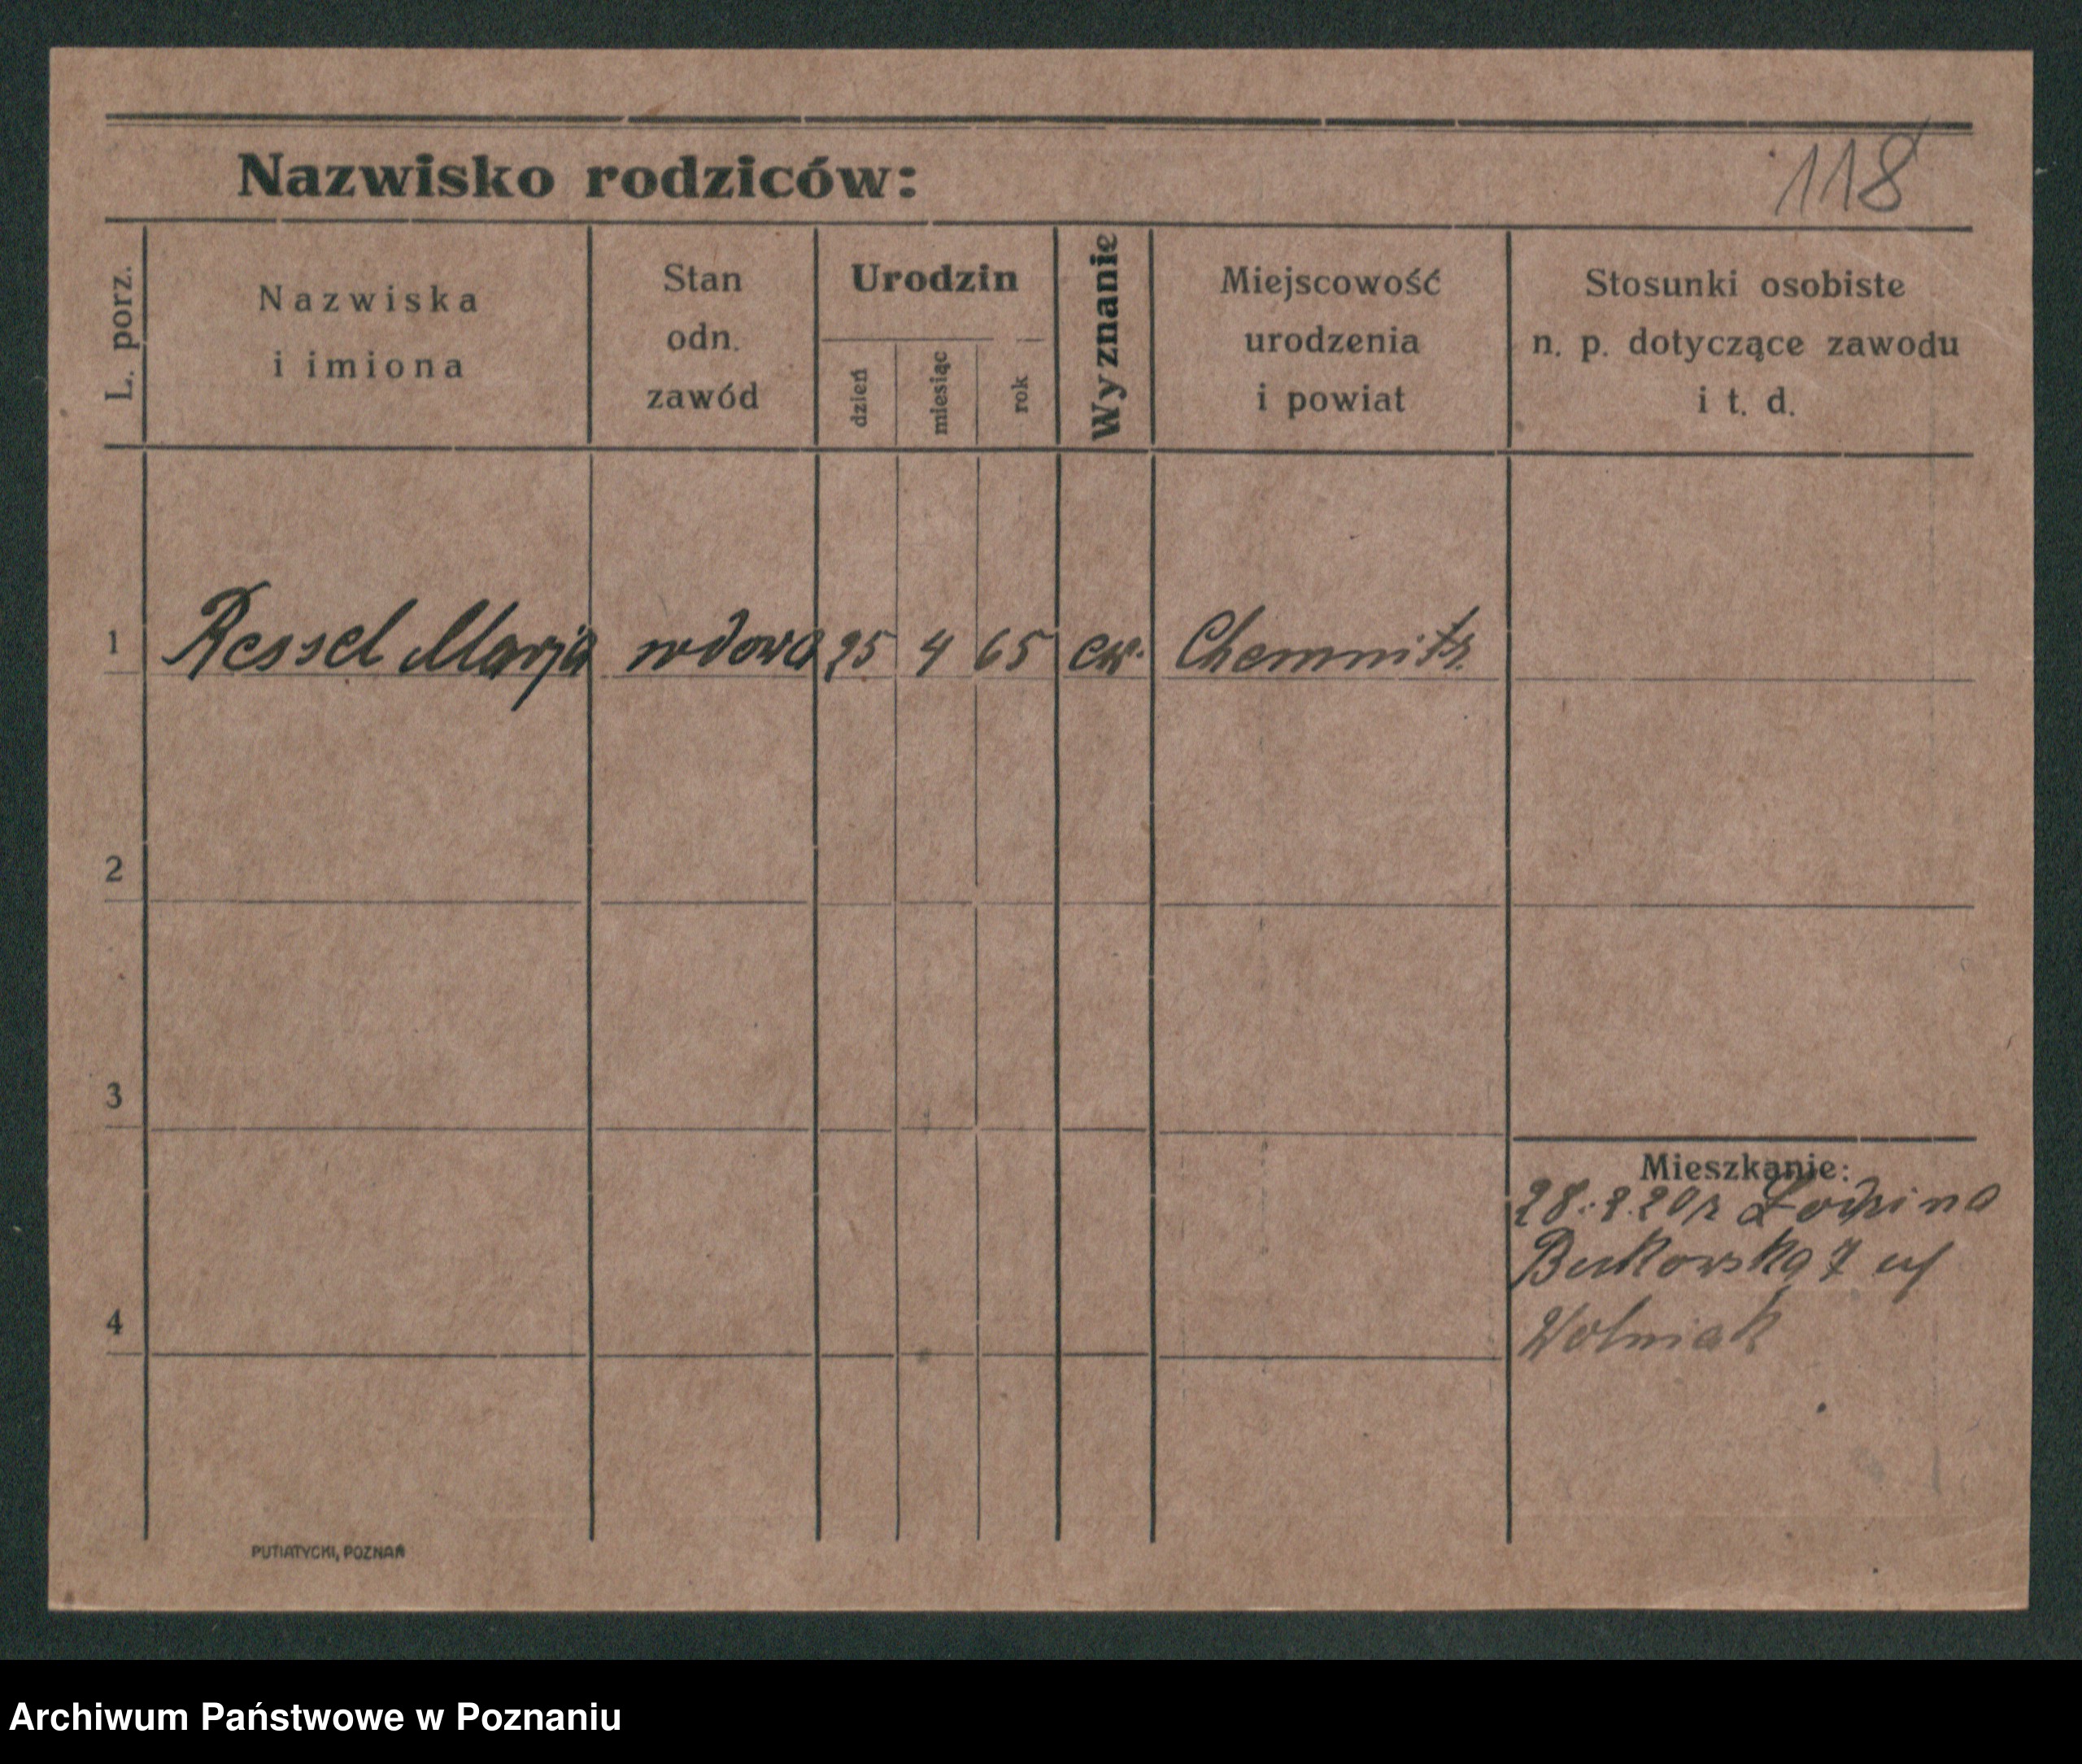 118
Nazwisko rodziców:
L. porz.
Nazwiska
i imiona
Stan
odn.
zawód
Urodzin
dzień
miesiąc
rok
Wyznanie
Miejscowość
urodzenia
i powiat
Stosunki osobiste
n. p. dotyczące zawodu
i t. d.
1 Ressel Marja wdowa 25 4 65 ew. Chemnitz
2
3
4
Mieszkanie:
28. 2. 20 r
Bukowska 7
Wolniak
PUTIATYCKI, POZNAŃ
Archiwum Państwowe w Poznaniu